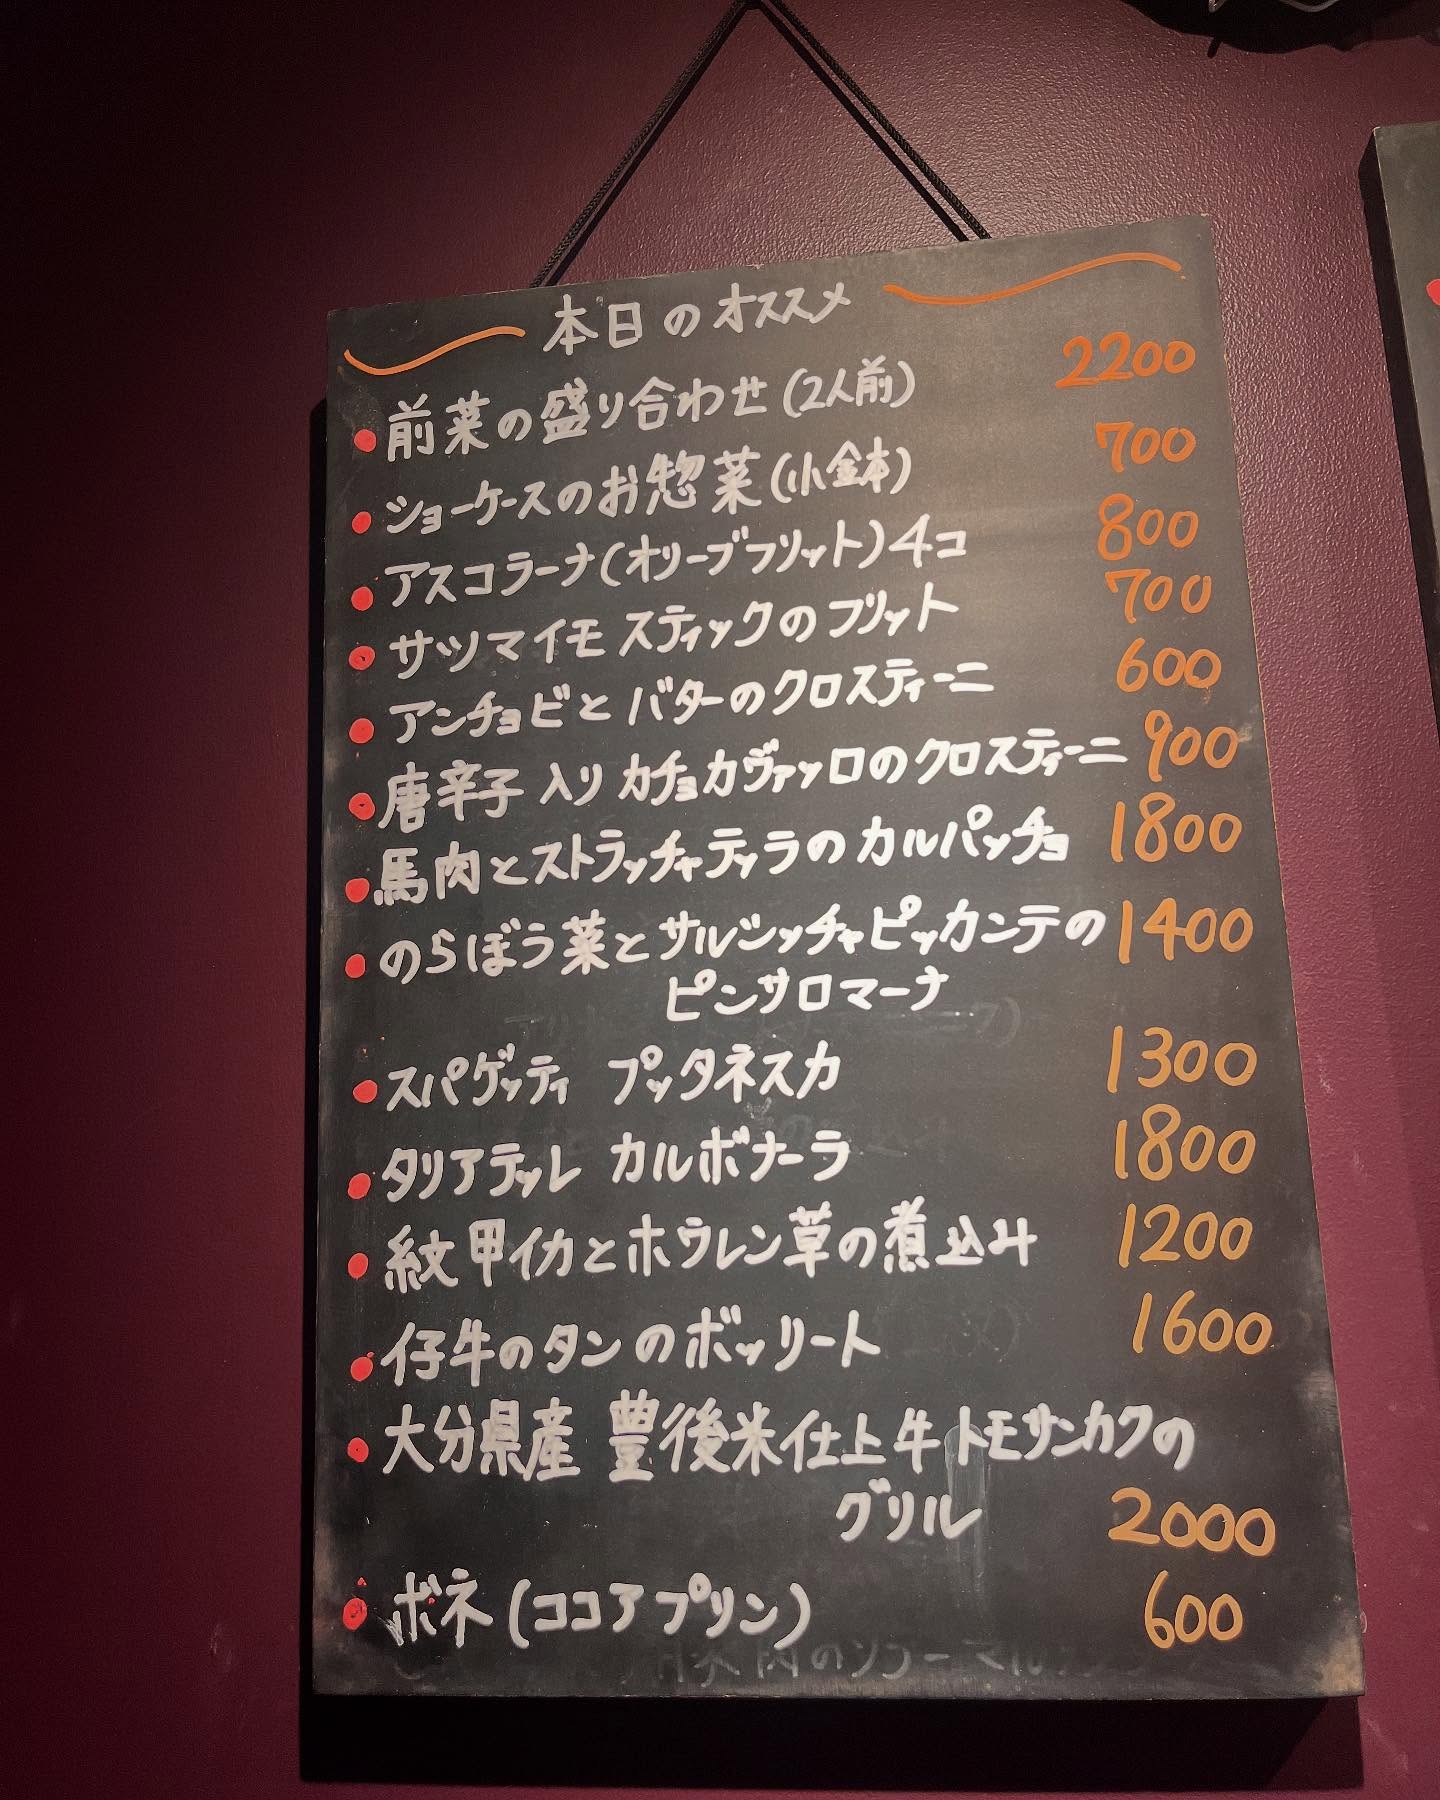 本日のオススメ
前菜の盛り合わせ(2人前) 2200
ショーケースのお惣菜(小鉢) 700
アスコラーナ(オリーブフリット)4コ 800
サツマイモ スティックのフリット 700
アンチョビと バターのクロスティーニ 600
唐辛子入り カチョカヴァッロのクロスティーニ 900
馬肉とストラッチャテッラのカルパッチョ 1800
のらぼう菜とサルシッチャピッカンテの 1400
ピンサロマーナ
スパゲッティ プッタネスカ 1300
タリアテッレ カルボナーラ 1800
紋甲イカとホウレン草の煮込み 1200
仔牛のタンのボッリート 1600
大分県産 豊後米仕上牛トモサンカクの
グリル 2000
ボネ(ココアプリン) 600